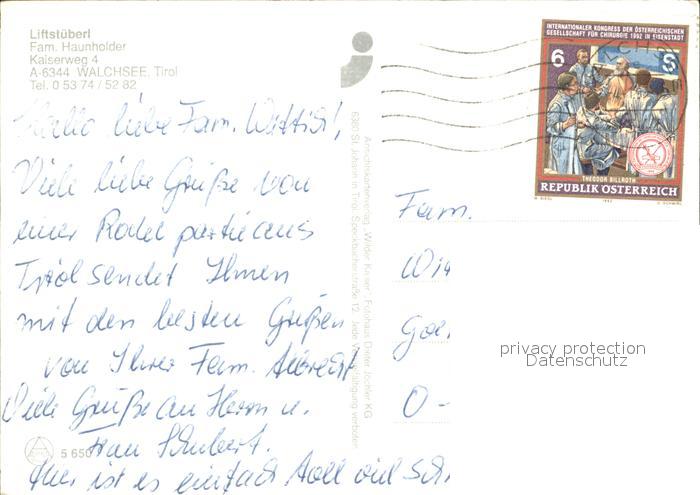 Liftstüberl
Fam. Haunholder
Kaiserweg 4
A-6344 WALCHSEE, Tirol
Tel. 0 53 74 / 52 82
INTERNATIONALER KONGRESS DER ÖSTERREICHISCHEN
GESELLSCHAFT FÜR CHIRURGIE 1992 IN EISENSTADT
6 S
THEODOR BILLROTH
REPUBLIK ÖSTERREICH
1992
Hallo liebe Fam. Wittich!,
Viele liebe Grüße von
einer Rodelpartie aus
Tirol sendet Ihnen
mit den besten Grüßen
von Ihrer Fam. Albrecht
Viele Grüße an Herrn u.
Frau Schubert.
Hier ist es einfach toll viel Sch
5 650
Ansichtskartenverlag „Wilder Kaiser“, Fotohaus Dieter Jöchler KG
6380 St. Johann in Tirol, Speckbacherstraße 12, Jede Vervielfältigung verboten
Fam.
Wit
O -
privacy protection
Datenschutz